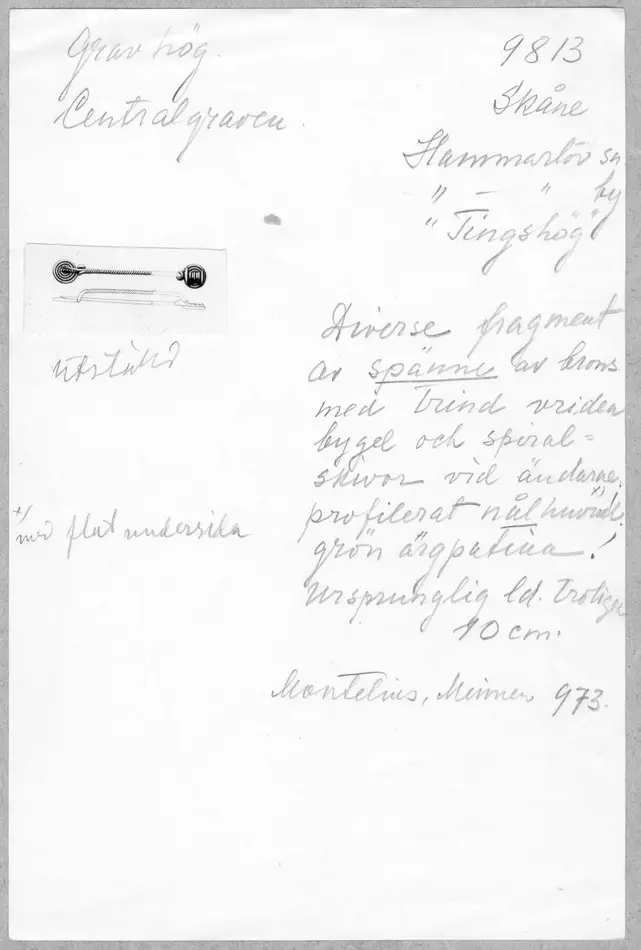 Gravhög.
Centralgraven.
9813
Skåne
Hammarlöv sn
" — " by
"Tingshög"
utställd
Diverse fragment
av spänne av brons
med trind vriden
bygel och spiral=
skivor vid ändarne,
profilerat nålhuvud x)
grön ärgpatina!
Ursprunglig ld. troligen
10 cm.
x) med flat undersida
Montelius, Minnen 973.